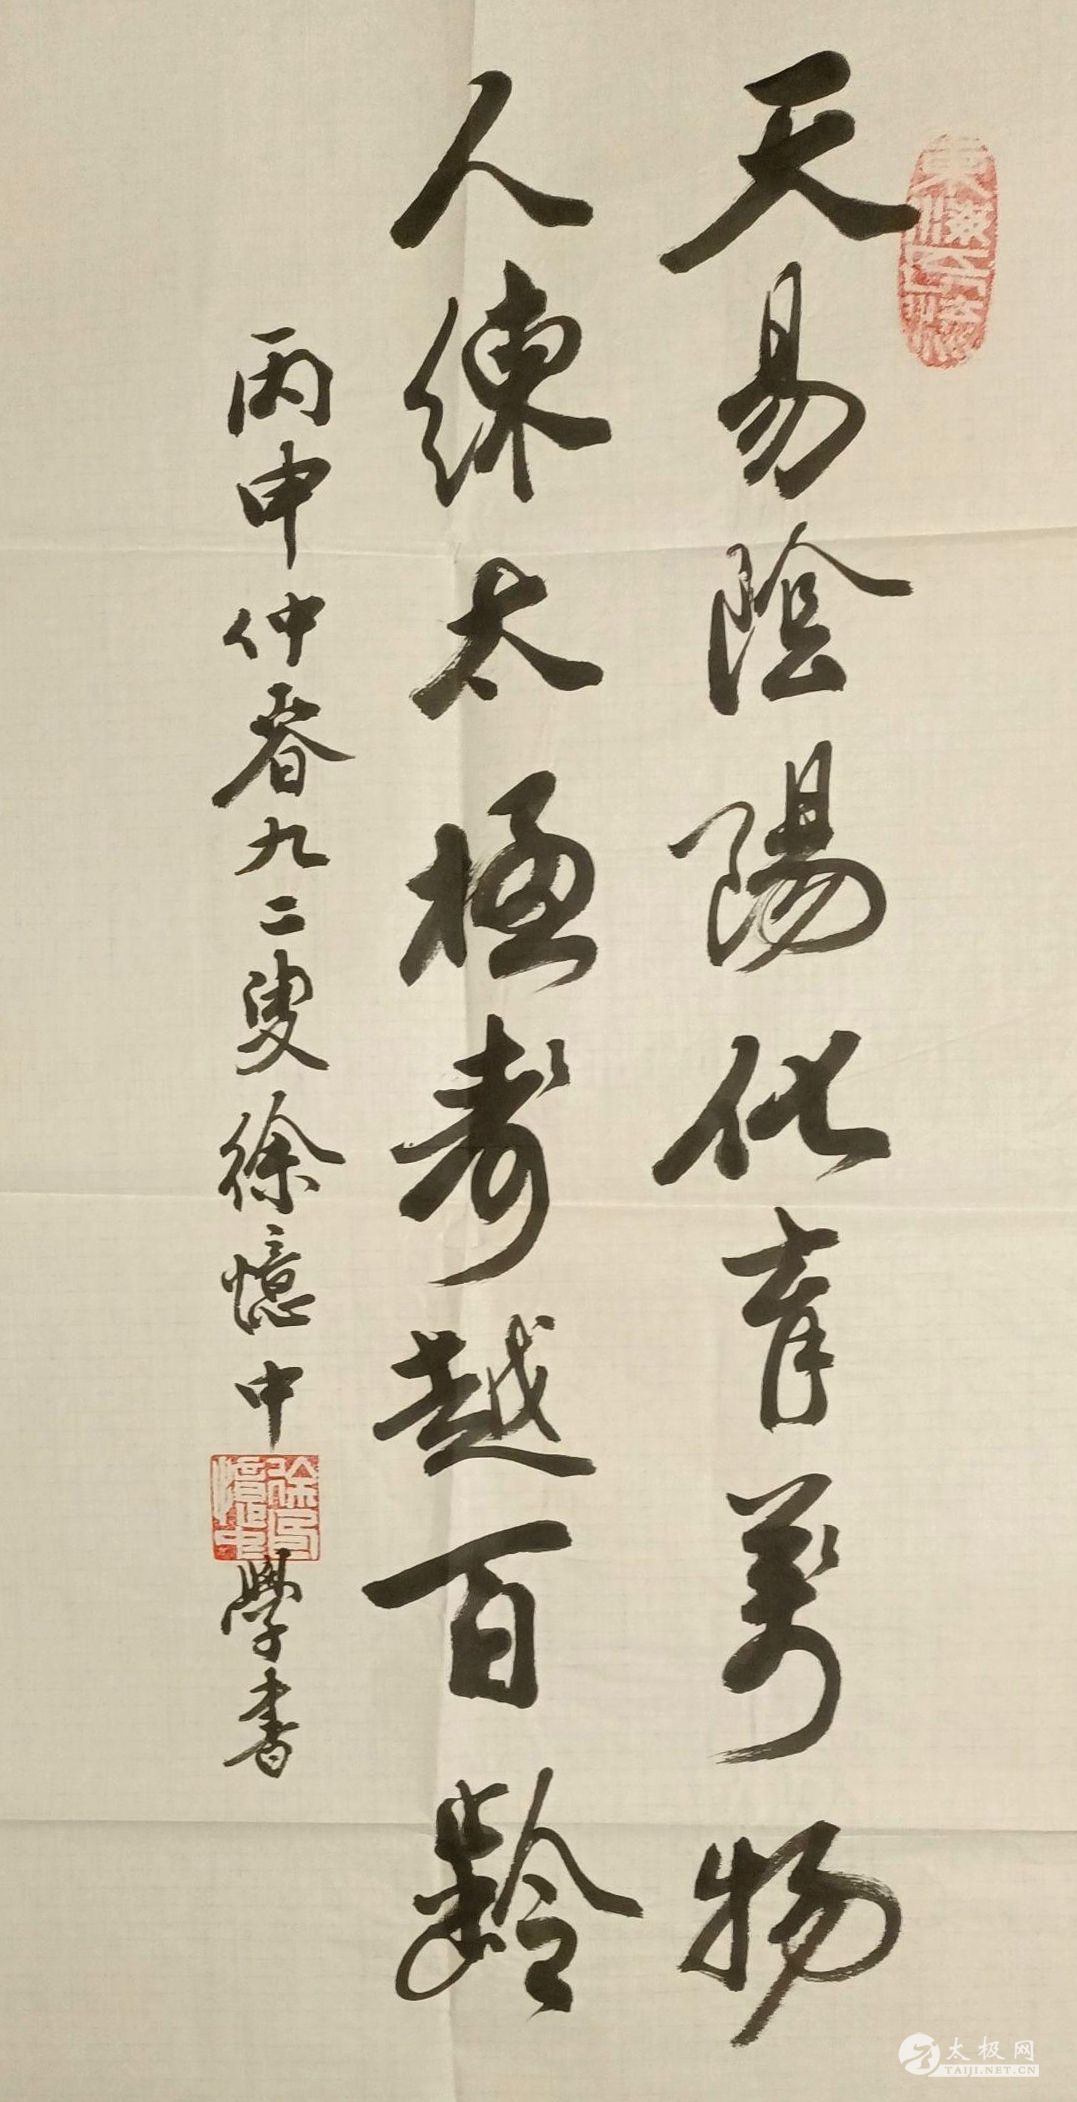 天易陰陽化育萬物
人練太極壽越百齡
丙申仲春九二叟徐憶中學書
徐憶中
太极网
TAIJI.NET.CN